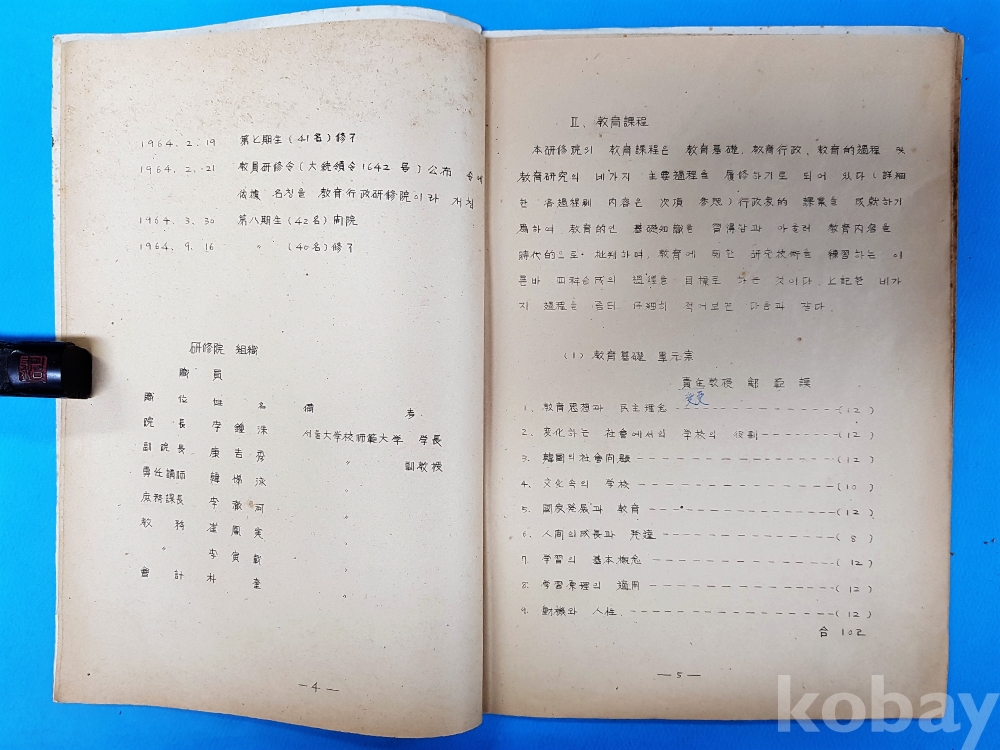 1964. 2. 19 第七期生(41名)修了
1964. 2. 21 教員研修令(大統領令1642号)公布
依據 名칭을 教育行政研修院이라 개칭
1964. 3. 30 第八期生(42名)開院
1964. 9. 16 〃 (40名)修了
研修院 組織
職 員
職 位 姓 名 備 考
院 長 李 鍾 洙 서울大学校師範大学 学長
副院長 康 吉 秀 〃 副教授
專任講師 韓 〃
庶務課長 李 澈 河 〃
教 務 崔 鳳 〃
〃 李 寅 〃
會 計 朴 奎 〃
— 4 —
Ⅱ. 教育課程
本研修院의 教育課程은 教育基礎, 教育行政, 教育的過程 및
教育研究의 네가지 主要過程을 履修하기로 되어 있다(詳細
한 各過程別 内容은 次項 参照)行政家的 課業을 成就하기
爲하여 教育的인 基礎知識을 習得함과 아울러 教育内容을
時代的으로 批判하며, 教育에 対한 研究技術을 練習하는 이
른바 四科合成의 過程을 目標로 하는 것이다. 上記한 네가
지 過程을 좀더 仔細히 적어보면 다음과 같다.
(1) 教育基礎 單元素
責任教授 鄭 範 謨
変更
1. 教育思想과 民主理念 (12)
2. 変化하는 社會에서의 学校의 役割 (12)
3. 韓国의 社會问題 (12)
4. 文化속의 学校 (10)
5. 國家発展과 教育 (12)
6. 人间의 成長과 発達 (8)
7. 学習의 基本概念 (12)
8. 学習原理의 適用 (12)
9. 動機와 人性 (12)
合 102
— 5 —
kobay